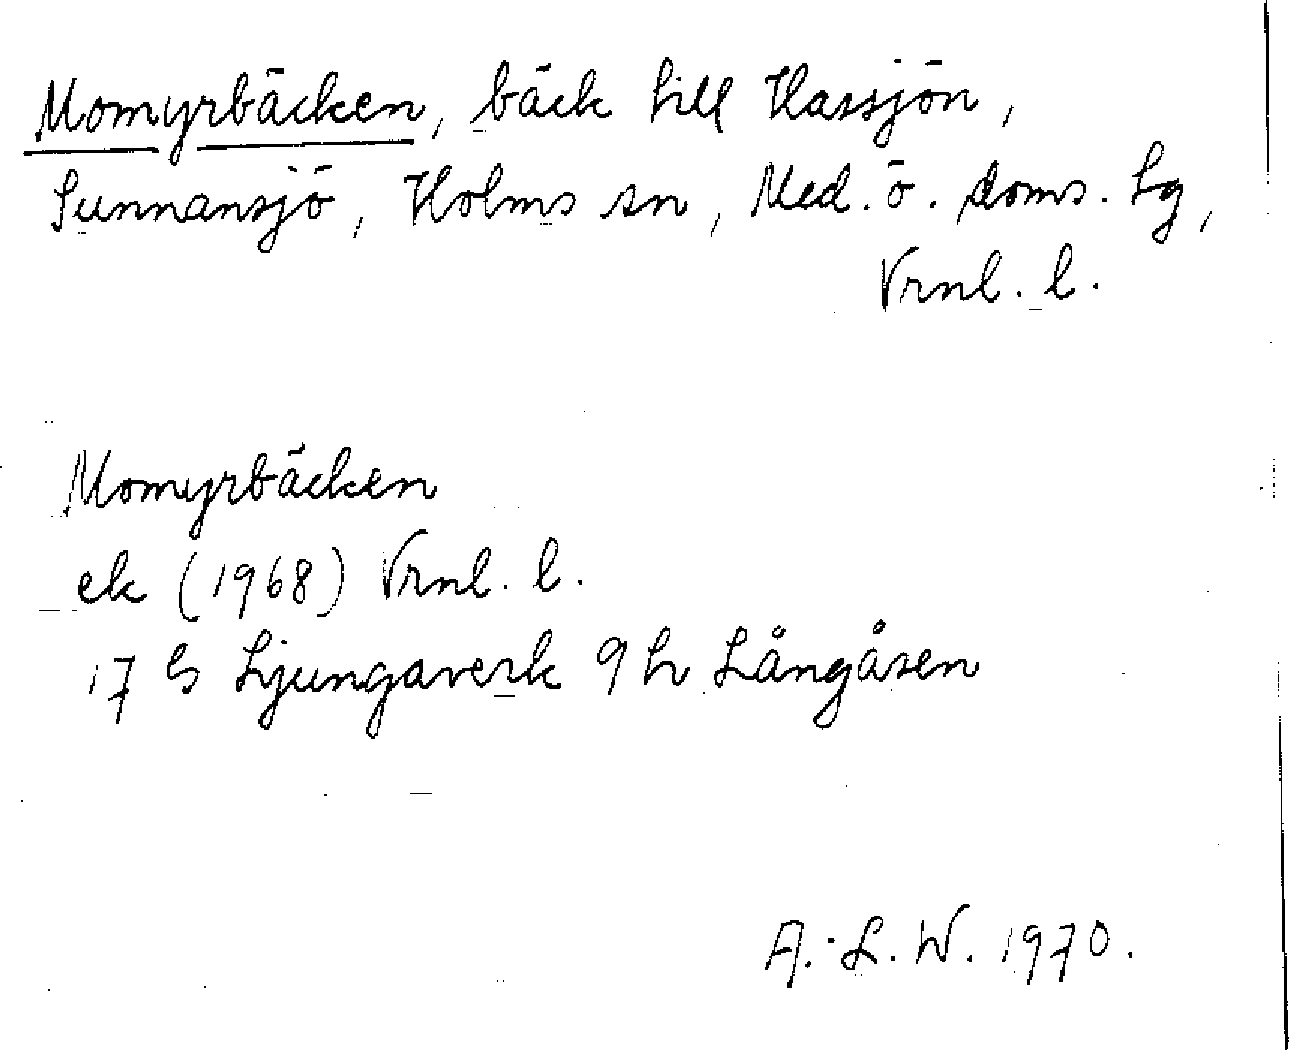 Momyrbäcken, bäck till Hassjön,
Sunnansjö, Holms sn, Med. ö. doms. tg,
Vrnl. l.
Momyrbäcken
ek (1968) Vrnl. l.
17 G Ljungaverk 9 h Långåsen
A.-L. W. 1970.